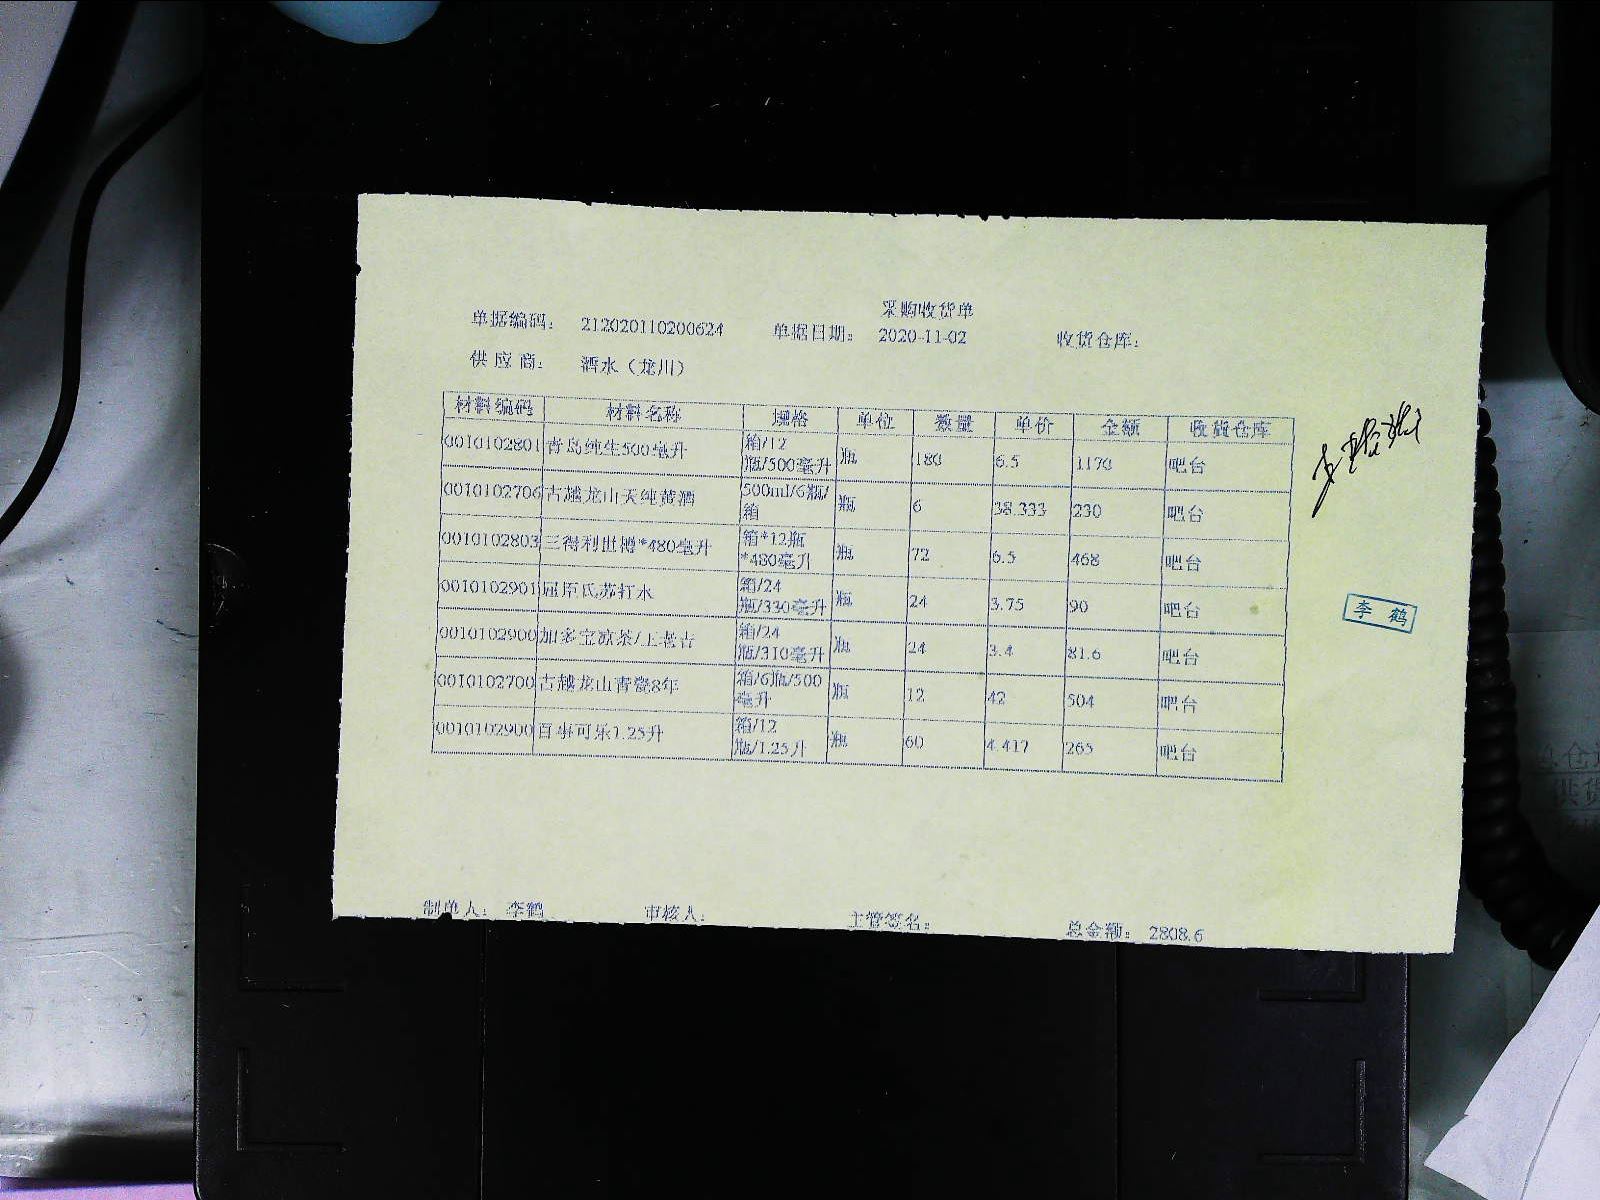 采购收货单
单据编码： 212020110200624 单据日期： 2020-11-02 收货仓库：
供 应 商： 酒水（龙川）
材料编码 材料名称 规格 单位 数量 单价 金额 收货仓库
0010102801 青岛纯生500毫升 箱/12瓶/500毫升 瓶 180 6.5 1170 吧台
0010102706 古越龙山天纯黄酒 500ml/6瓶/箱 瓶 6 38.333 230 吧台
0010102803 三得利世樽*480毫升 箱*12瓶*480毫升 瓶 72 6.5 468 吧台
0010102901 屈臣氏苏打水 箱/24瓶/330毫升 瓶 24 3.75 90 吧台
0010102900 加多宝凉茶/王老吉 箱/24瓶/310毫升 瓶 24 3.4 81.6 吧台
0010102700 古越龙山青瓷8年 箱/6瓶/500毫升 瓶 12 42 504 吧台
0010102900 百事可乐1.25升 箱/12瓶/1.25升 瓶 60 4.417 265 吧台
李 鹤
制单人： 李鹤 审核人： 主管签名： 总金额： 2808.6